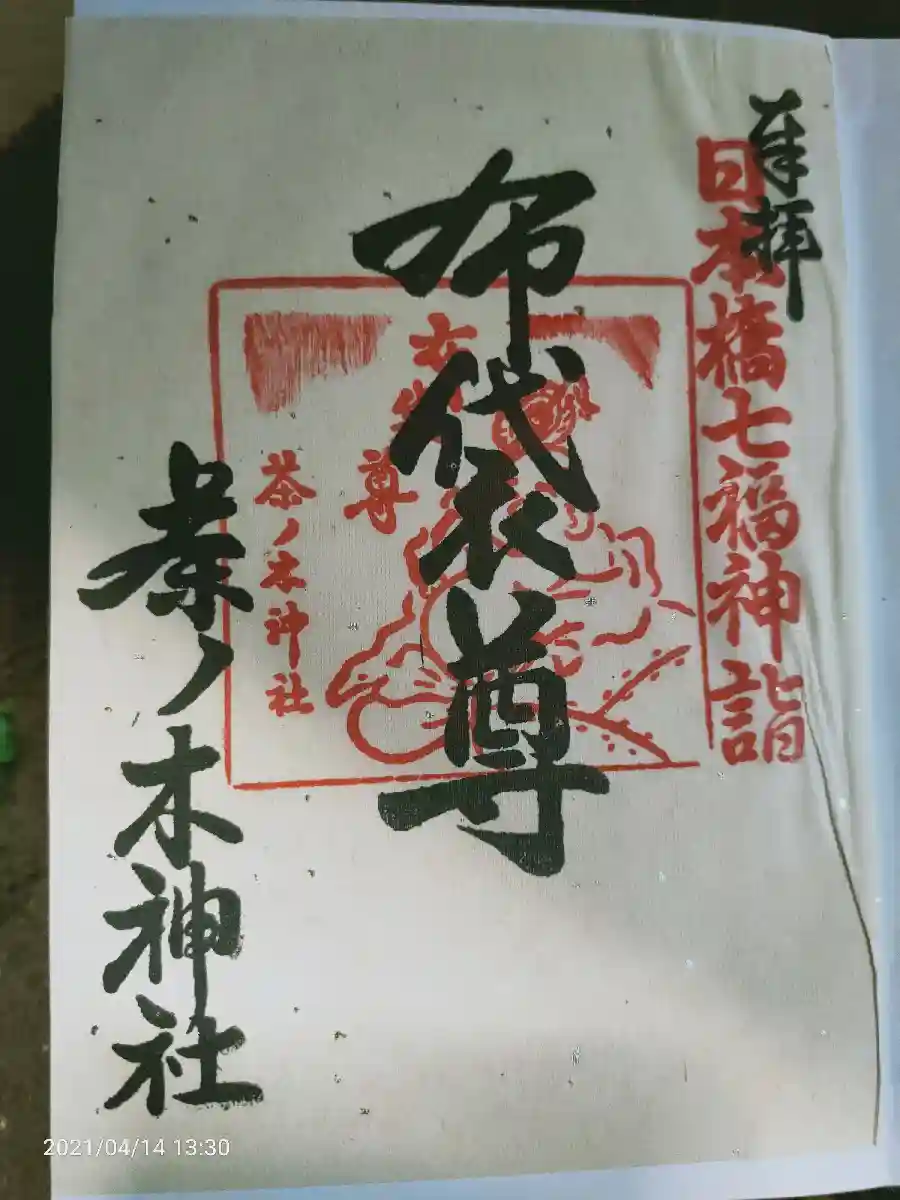 奉拝
日本橋七福神詣
布代衣尊
布袋尊
茶ノ木神社
茶ノ木神社
2021/04/14 13:30